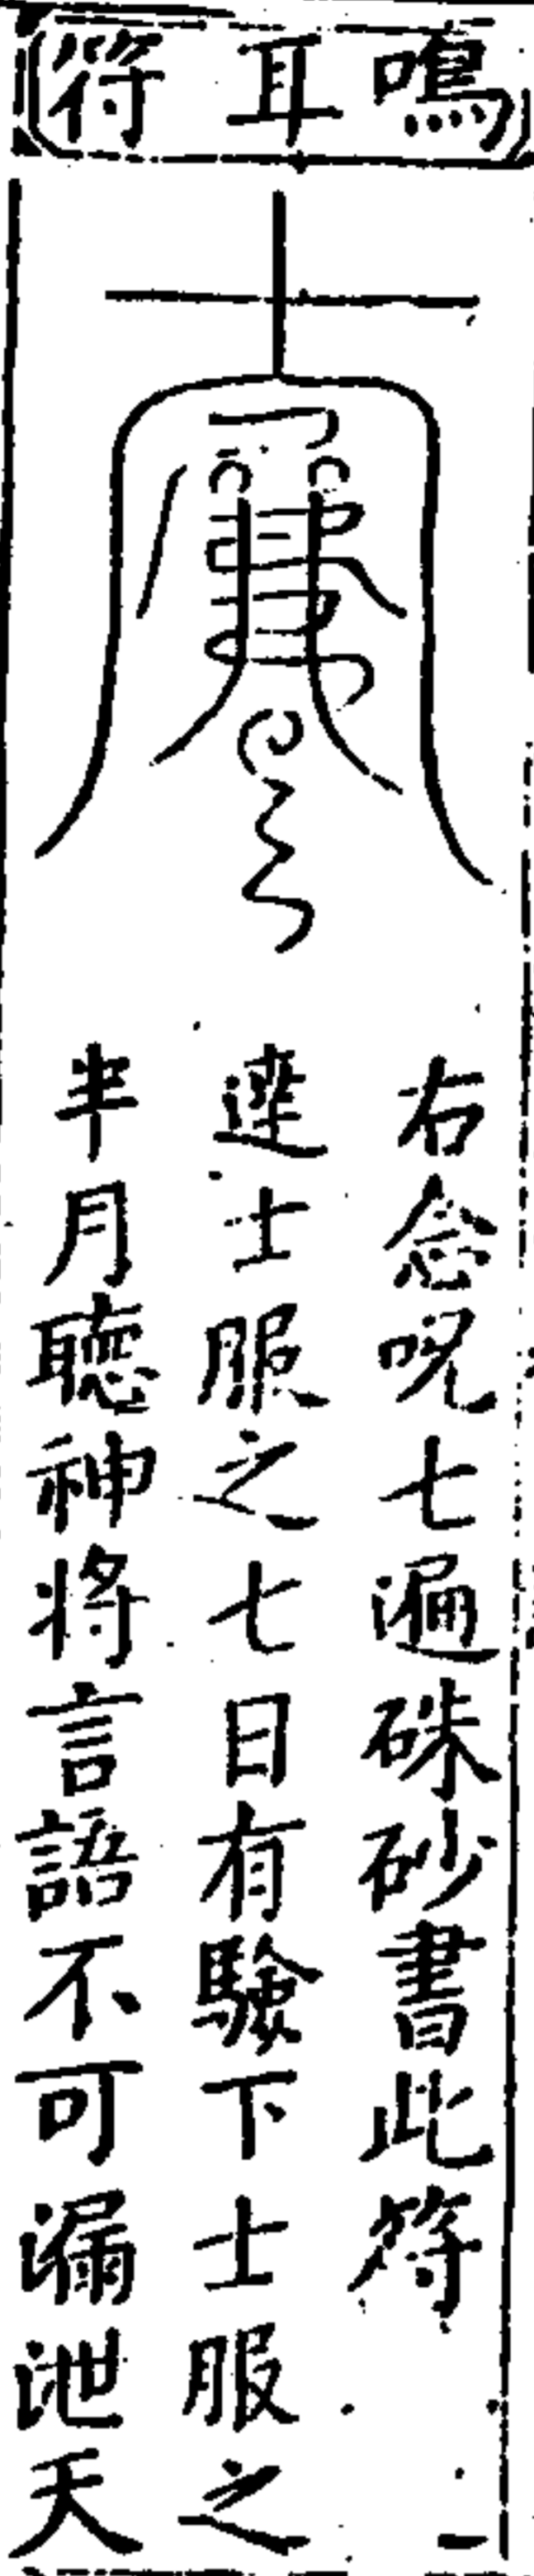 鳴耳符
右念呪七遍硃砂書此符
達士服之七日有驗下士服之
半月聽神將言語不可漏泄天